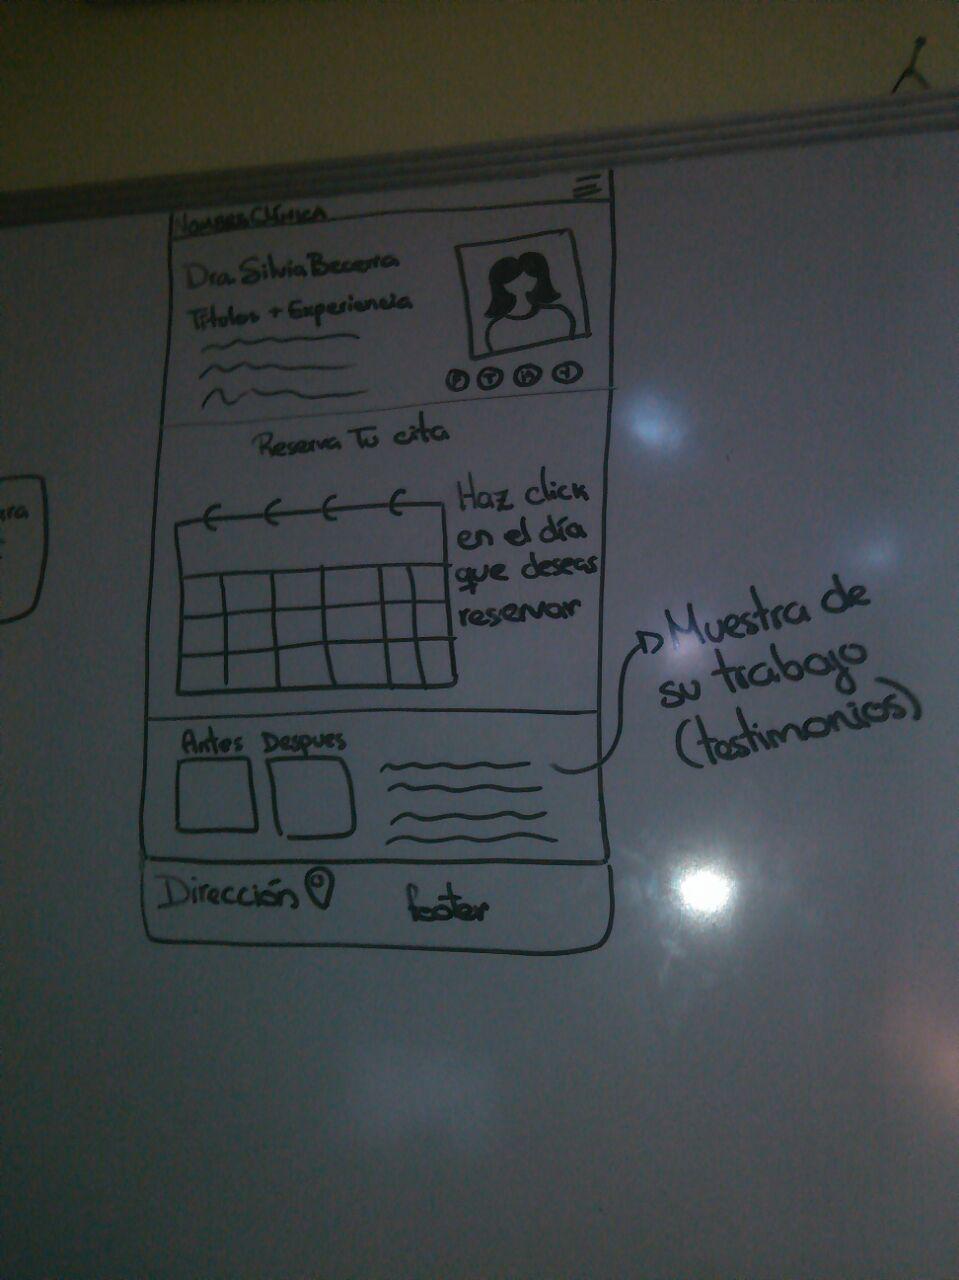 NOMBRE CLÍNICA
Dra. Silvia Becerra
Títulos + Experiencia
Reserva Tu cita
Haz click
en el día
que deseas
reservar
Muestra de
su trabajo
(testimonios)
Antes Despues
Dirección
footer